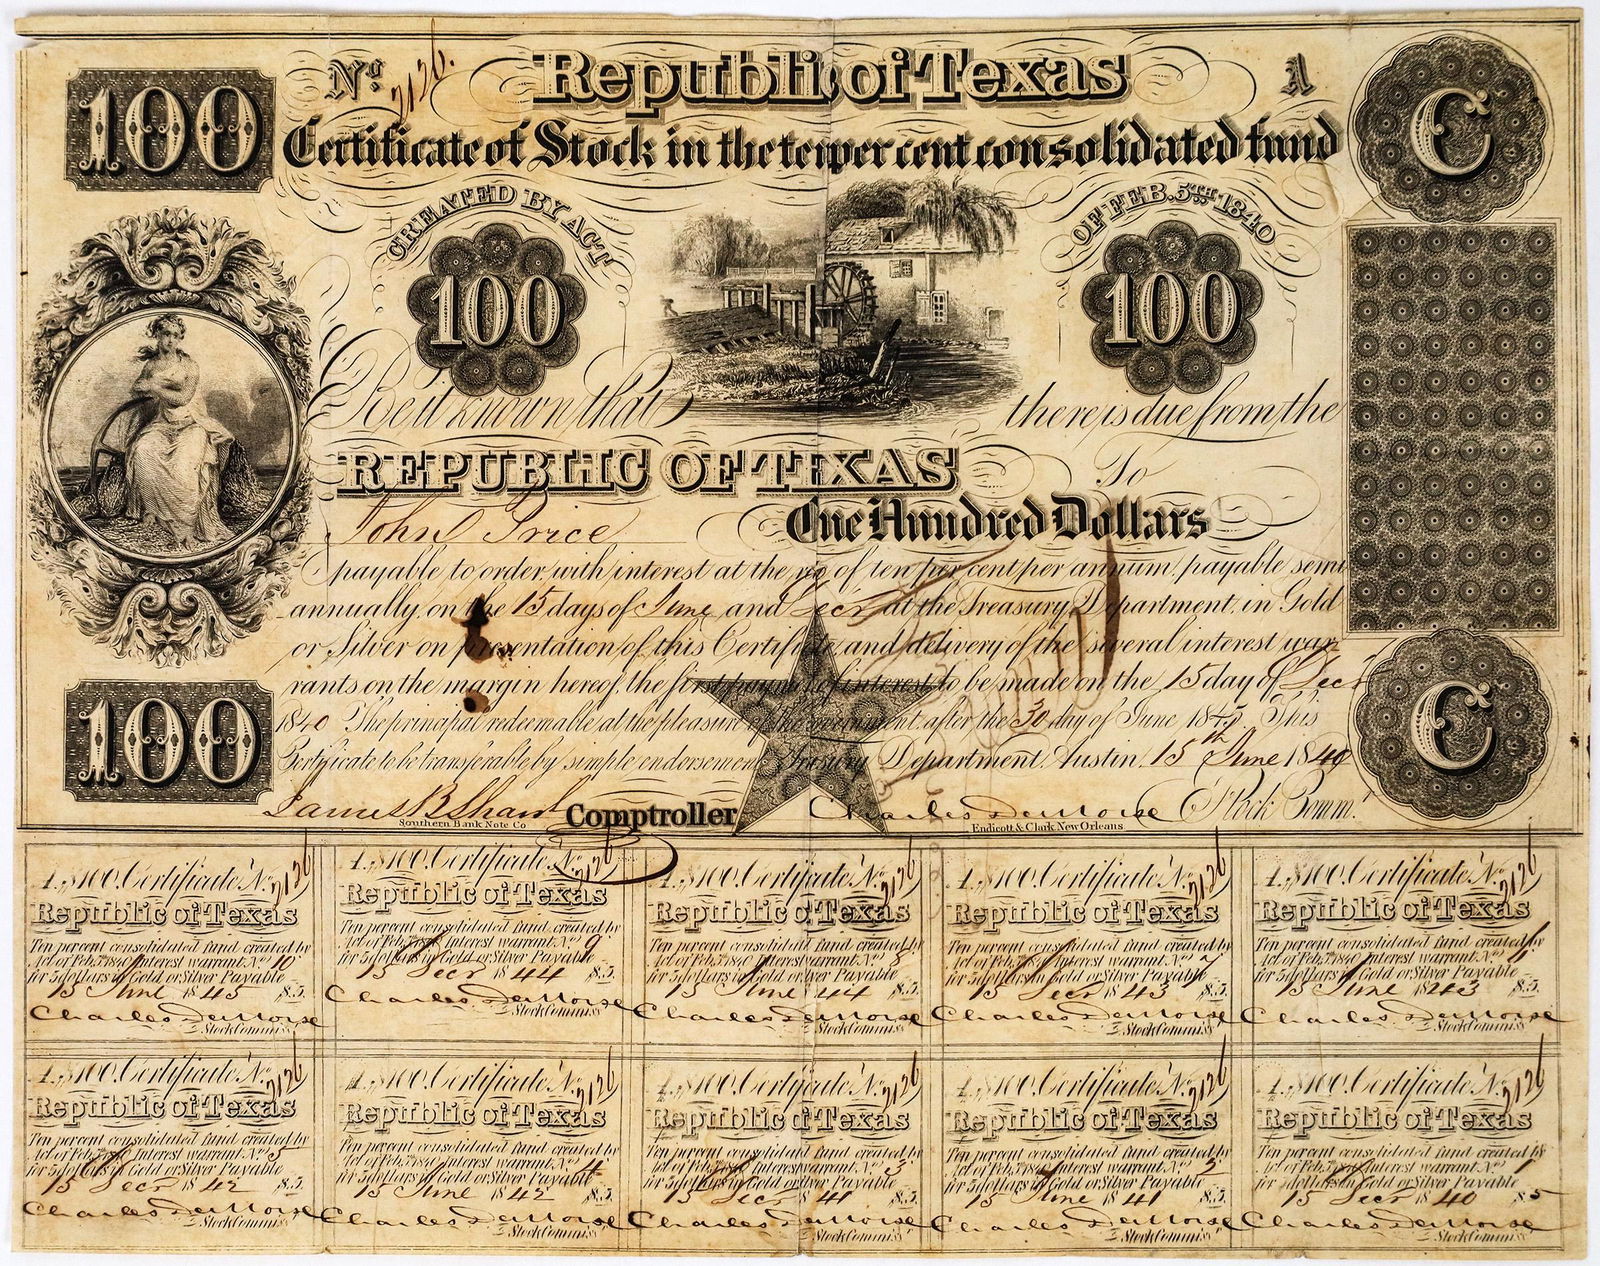 100
No. 2126.
Republic of Texas
A
C
Certificate of Stock in the ten per cent consolidated fund
CREATED BY ACT
OF FEB. 5TH 1840
100
100
Be it known that
there is due from the
REPUBLIC OF TEXAS
To
John Price
One Hundred Dollars
payable to order, with interest at the rate of ten per cent per annum, payable semi
annually, on the 15 days of June and Decr at the Treasury Department, in Gold
or Silver on presentation of this Certificate, and delivery of the several interest war-
rants on the margin hereof, the first payment of interest to be made on the 15 day of Decr
1840 The principal redeemable at the pleasure of the government after the 30 day of June 1845. This
Certificate to be transferable by simple endorsement. Treasury Department, Austin, 15th June 1840
100
C
James B Shaw Comptroller
Charles DeMorse Stock Commr.
Southern Bank Note Co.
Endicott & Clark New Orleans.
A. $100. Certificate No. 2126
Republic of Texas
Ten per cent consolidated fund created by
Act of Feb. 5th 1840 Interest warrant No. 10
for 5 dollars in Gold or Silver Payable
15 June 1845 $5.
Charles DeMorse
Stock Commiss
A. $100. Certificate No. 2126
Republic of Texas
Ten per cent consolidated fund created by
Act of Feb. 5th 1840 Interest warrant No. 9
for 5 dollars in Gold or Silver Payable
15 Decr 1844 $5.
Charles DeMorse
Stock Commiss
A. $100. Certificate No. 2126
Republic of Texas
Ten per cent consolidated fund created by
Act of Feb. 5th 1840 Interest warrant No. 8
for 5 dollars in Gold or Silver Payable
15 June 1844 $5.
Charles DeMorse
Stock Commiss
A. $100. Certificate No. 2126
Republic of Texas
Ten per cent consolidated fund created by
Act of Feb. 5th 1840 Interest warrant No. 7
for 5 dollars in Gold or Silver Payable
15 Decr 1843 $5.
Charles DeMorse
Stock Commiss
A. $100. Certificate No. 2126
Republic of Texas
Ten per cent consolidated fund created by
Act of Feb. 5th 1840 Interest warrant No. 6
for 5 dollars in Gold or Silver Payable
15 June 1843 $5.
Charles DeMorse
Stock Commiss
A. $100. Certificate No. 2126
Republic of Texas
Ten per cent consolidated fund created by
Act of Feb. 5th 1840 Interest warrant No. 5
for 5 dollars in Gold or Silver Payable
15 Decr 1842 $5.
Charles DeMorse
Stock Commiss
A. $100. Certificate No. 2126
Republic of Texas
Ten per cent consolidated fund created by
Act of Feb. 5th 1840 Interest warrant No. 4
for 5 dollars in Gold or Silver Payable
15 June 1842 $5.
Charles DeMorse
Stock Commiss
A. $100. Certificate No. 2126
Republic of Texas
Ten per cent consolidated fund created by
Act of Feb. 5th 1840 Interest warrant No. 3
for 5 dollars in Gold or Silver Payable
15 Decr 1841 $5.
Charles DeMorse
Stock Commiss
A. $100. Certificate No. 2126
Republic of Texas
Ten per cent consolidated fund created by
Act of Feb. 5th 1840 Interest warrant No. 2
for 5 dollars in Gold or Silver Payable
15 June 1841 $5.
Charles DeMorse
Stock Commiss
A. $100. Certificate No. 2126
Republic of Texas
Ten per cent consolidated fund created by
Act of Feb. 5th 1840 Interest warrant No. 1
for 5 dollars in Gold or Silver Payable
15 Decr 1840 $5
Charles DeMorse
Stock Commiss